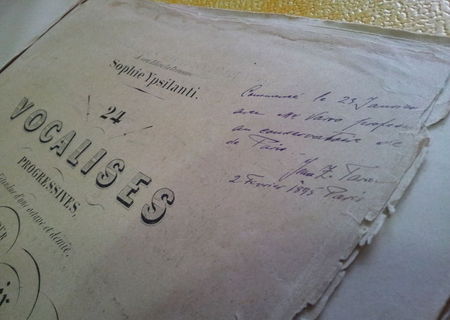 Sophie Ypsilanti.
24
VOCALISES
PROGRESSIVES,
d'une octave et demie,
Commencé le 23 Janvier
avec Mr
au conservatoire
de Paris.
2 Février 1895 Paris